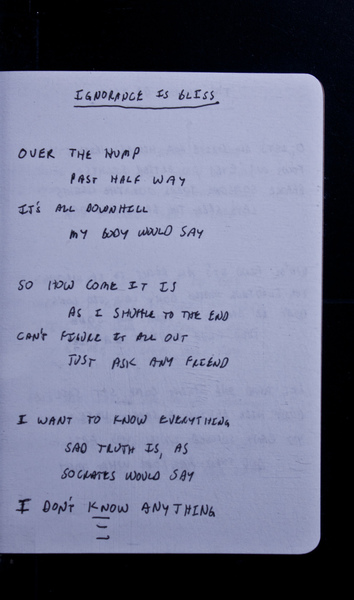 IGNORANCE IS BLISS
OVER THE HUMP
PAST HALF WAY
IT'S ALL DOWNHILL
MY BODY WOULD SAY
SO HOW COME IT IS
AS I SHUFFLE TO THE END
CAN'T FIGURE IT ALL OUT
JUST ASK ANY FRIEND
I WANT TO KNOW EVERYTHING
SAD TRUTH IS, AS
SOCRATES WOULD SAY
I DON'T KNOW ANYTHING